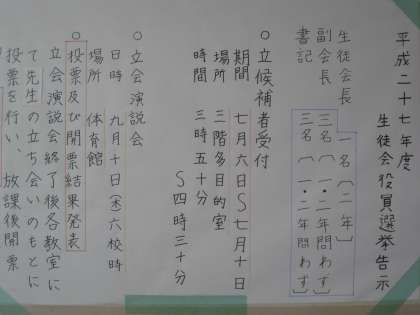 平成二十七年度
生徒会役員選挙告示
生徒会長 一名（二年）
副会長 三名（一・二年問わず）
書記 三名（一・二年問わず）
○立候補者受付
期間 七月六日～七月十日
場所 三階多目的室
時間 三時五十分
～四時三十分
○立会演説会
日時 九月十日（木）六校時
場所 体育館
○投票及び開票結果発表
立会演説会終了後各教室に
て先生の立ち会いのもとに
投票を行い、放課後開票